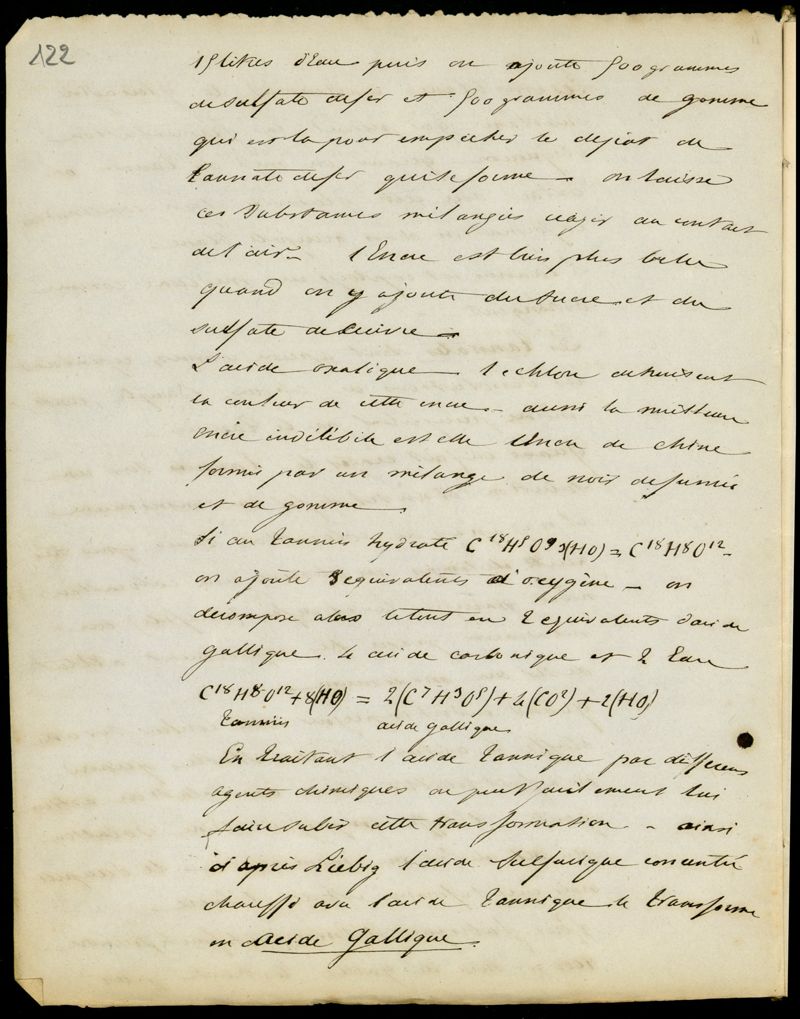 122
15 litres d'Eau puis on ajoute 500 grammes
de sulfate de fer et 500 grammes de gomme
qui est la pour empecher le depot de
Tannate de fer qui se forme – on laisse
ces substances mélangées réagir au contact
de l'air – l'Encre est bien plus belle
quand on y ajoute du sucre et du
sulfate de cuivre –
L'acide oxalique le chlore detruisent
la couleur de cette encre – aussi la meilleure
encre indélébile est elle l'encre de chine
formée par un mélange de noir de fumée
et de gomme.
Si au Tannin hydraté C¹⁸H⁵O⁹3(HO) = C¹⁸H⁸O¹² –
on ajoute 8 equivalents d'oxygène – on
décompose alors le tout en 2 equivalents d'acide
Gallique. 4 acide carbonique et 2 Eau
C¹⁸H⁸O¹² + 8(HO) = 2(C⁷H³O⁵) + 4(CO²) + 2(HO)
Tannin acide gallique
En traitant l'acide Tannique par differens
agents chimiques on peut facilement lui
faire subir cette transformation – ainsi
d'après Liebig l'acide Sulfurique concentré
chauffé avec l'acide Tannique le transforme
en acide Gallique.